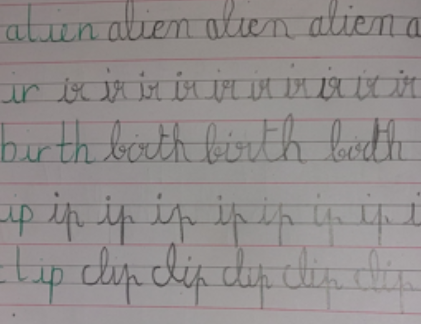 alien alien alien alien a
ir ir ir ir ir ir ir ir ir ir ir
birth birth birth birth
ip ip ip ip ip ip ip ip i
clip clip clip clip clip clip